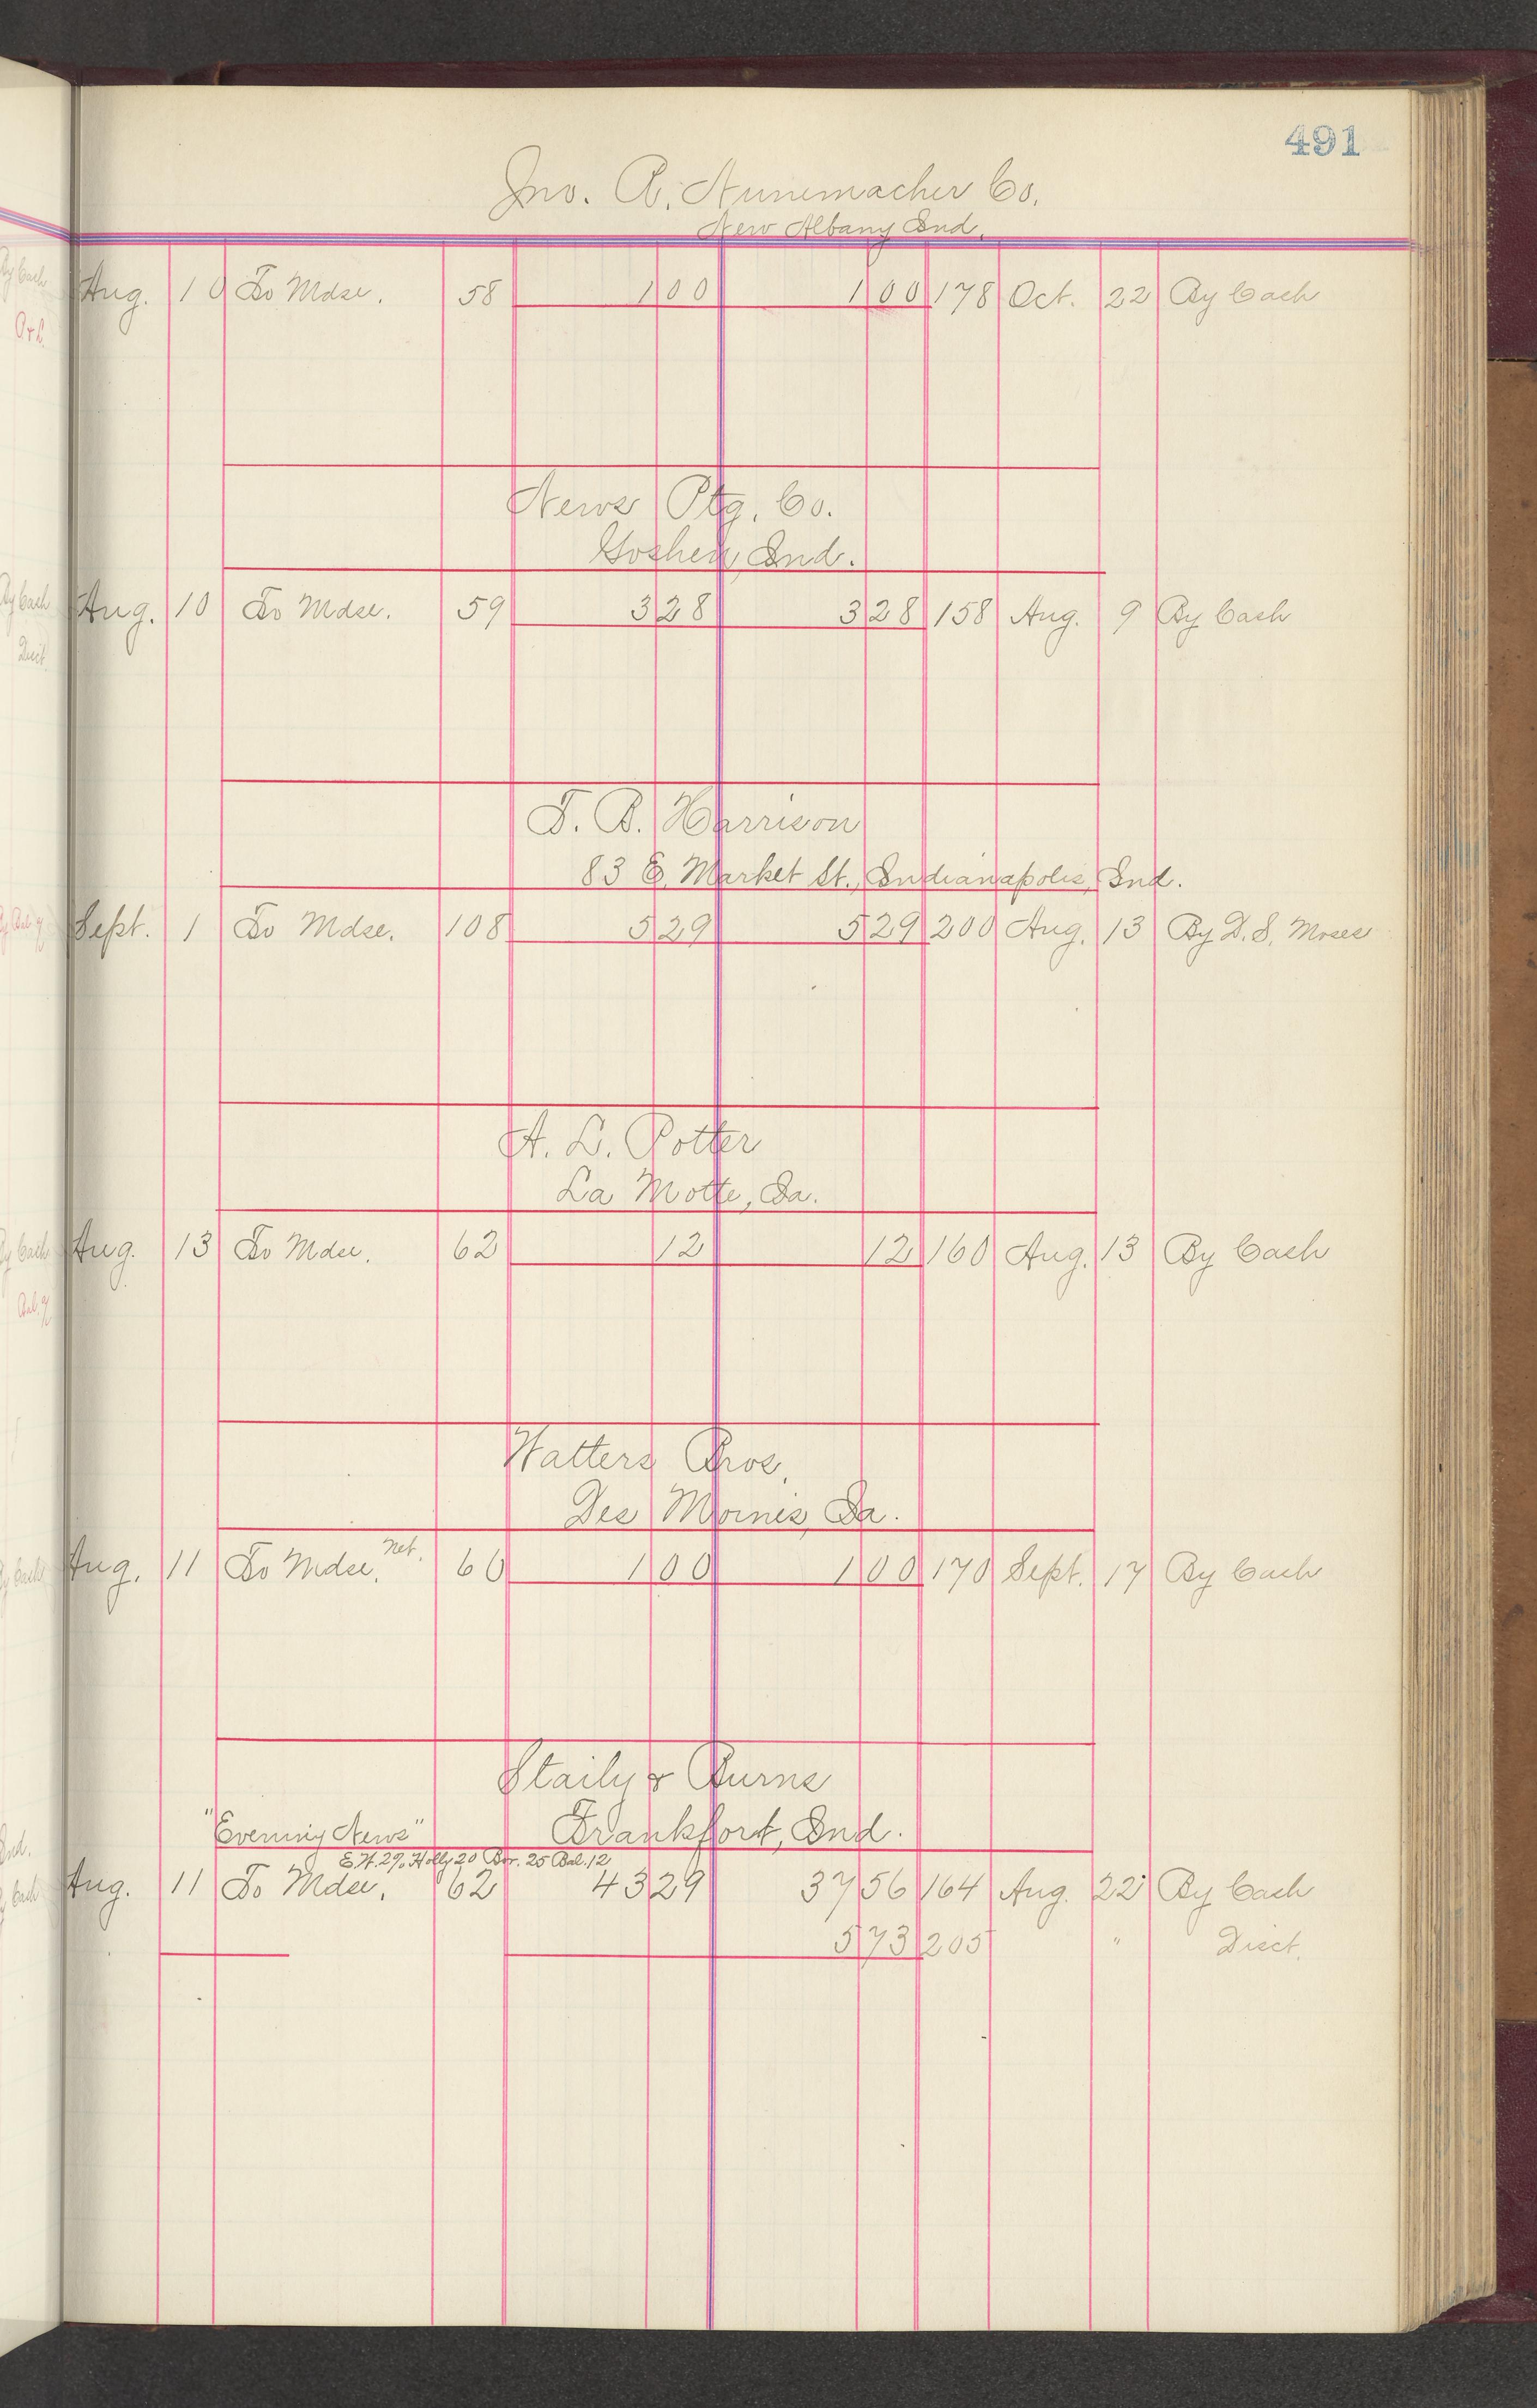 491
Jno. R. Nunemacher Co.
New Albany Ind.
Aug. 10 To Mdse. 58 1 00 1 00 178 Oct. 22 By Cash
News Ptg. Co.
Goshen, Ind.
Aug. 10 To Mdse. 59 3 28 3 28 158 Aug. 9 By Cash
T. B. Harrison
83 E. Market St., Indianapolis, Ind.
Sept. 1 To Mdse. 108 5 29 5 29 200 Aug. 13 By D. S. Moses
A. L. Potter
La Motte, Ia.
Aug. 13 To Mdse. 62 12 12 160 Aug. 13 By Cash
Watters Bros.
Des Moines, Ia.
Aug. 11 To Mdse. Net. 60 1 00 1 00 170 Sept. 17 By Cash
Staily & Burns
"Evening News" Frankfort, Ind.
E.H. 29, Holly 20 Bor. 25 Bal. 12
Aug. 11 To Mdse. 62 43 29 37 56 164 Aug. 22 By Cash
5 73 205 " Disct.